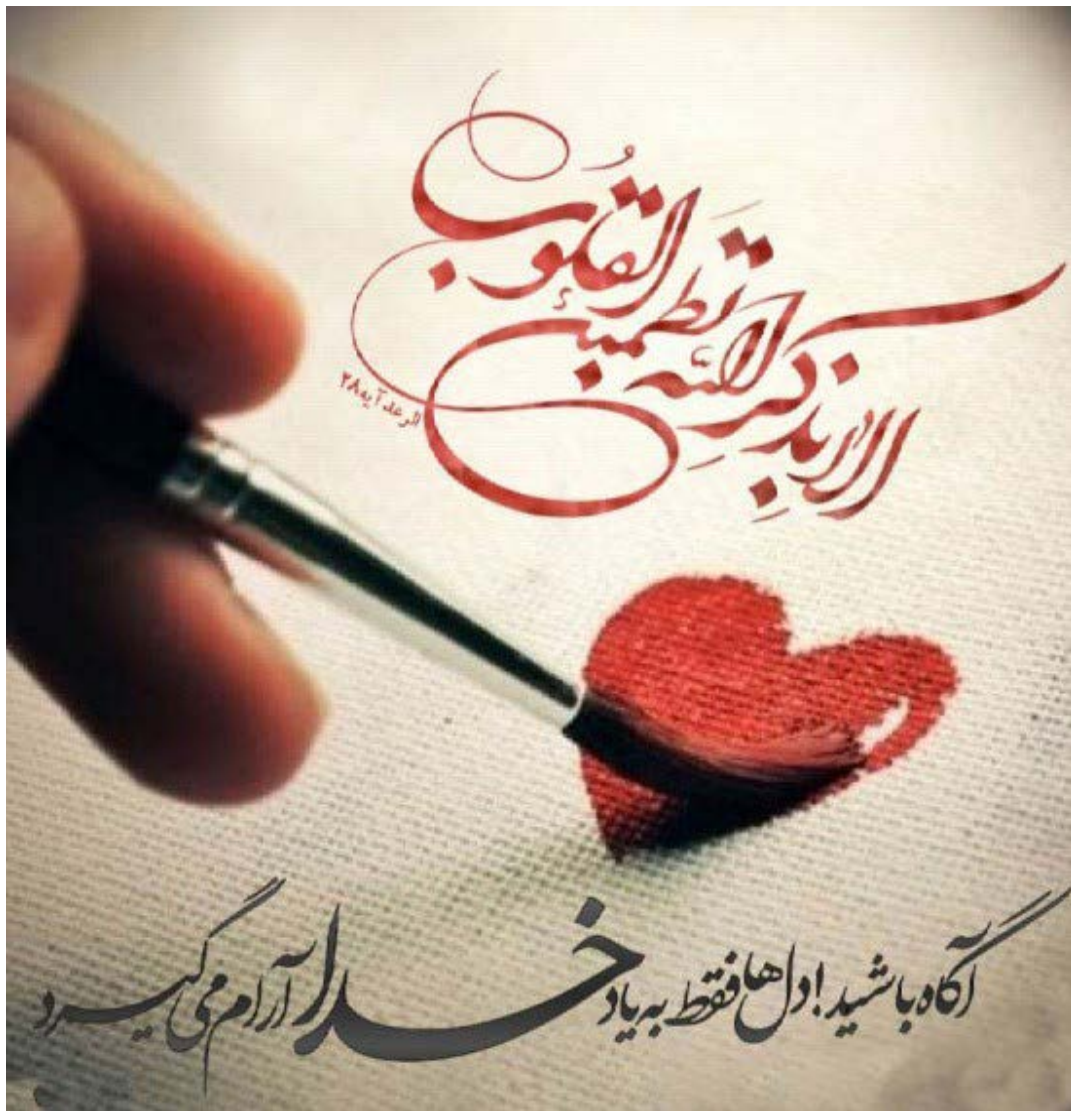 الا بذکرِ اللّه تطمئن القلُوب
الرعد آیه ۲۸
آگاه باشید! دل‌ها فقط به یاد خدا آرام می‌گیرد